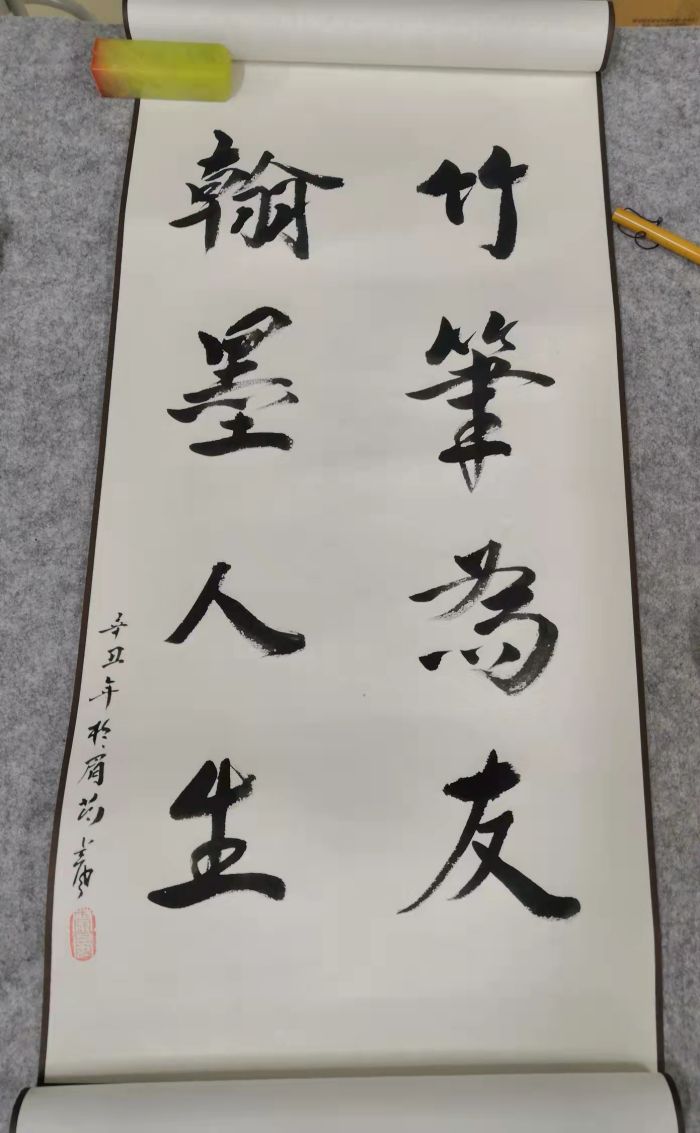 竹筆為友
翰墨人生
辛丑年於眉